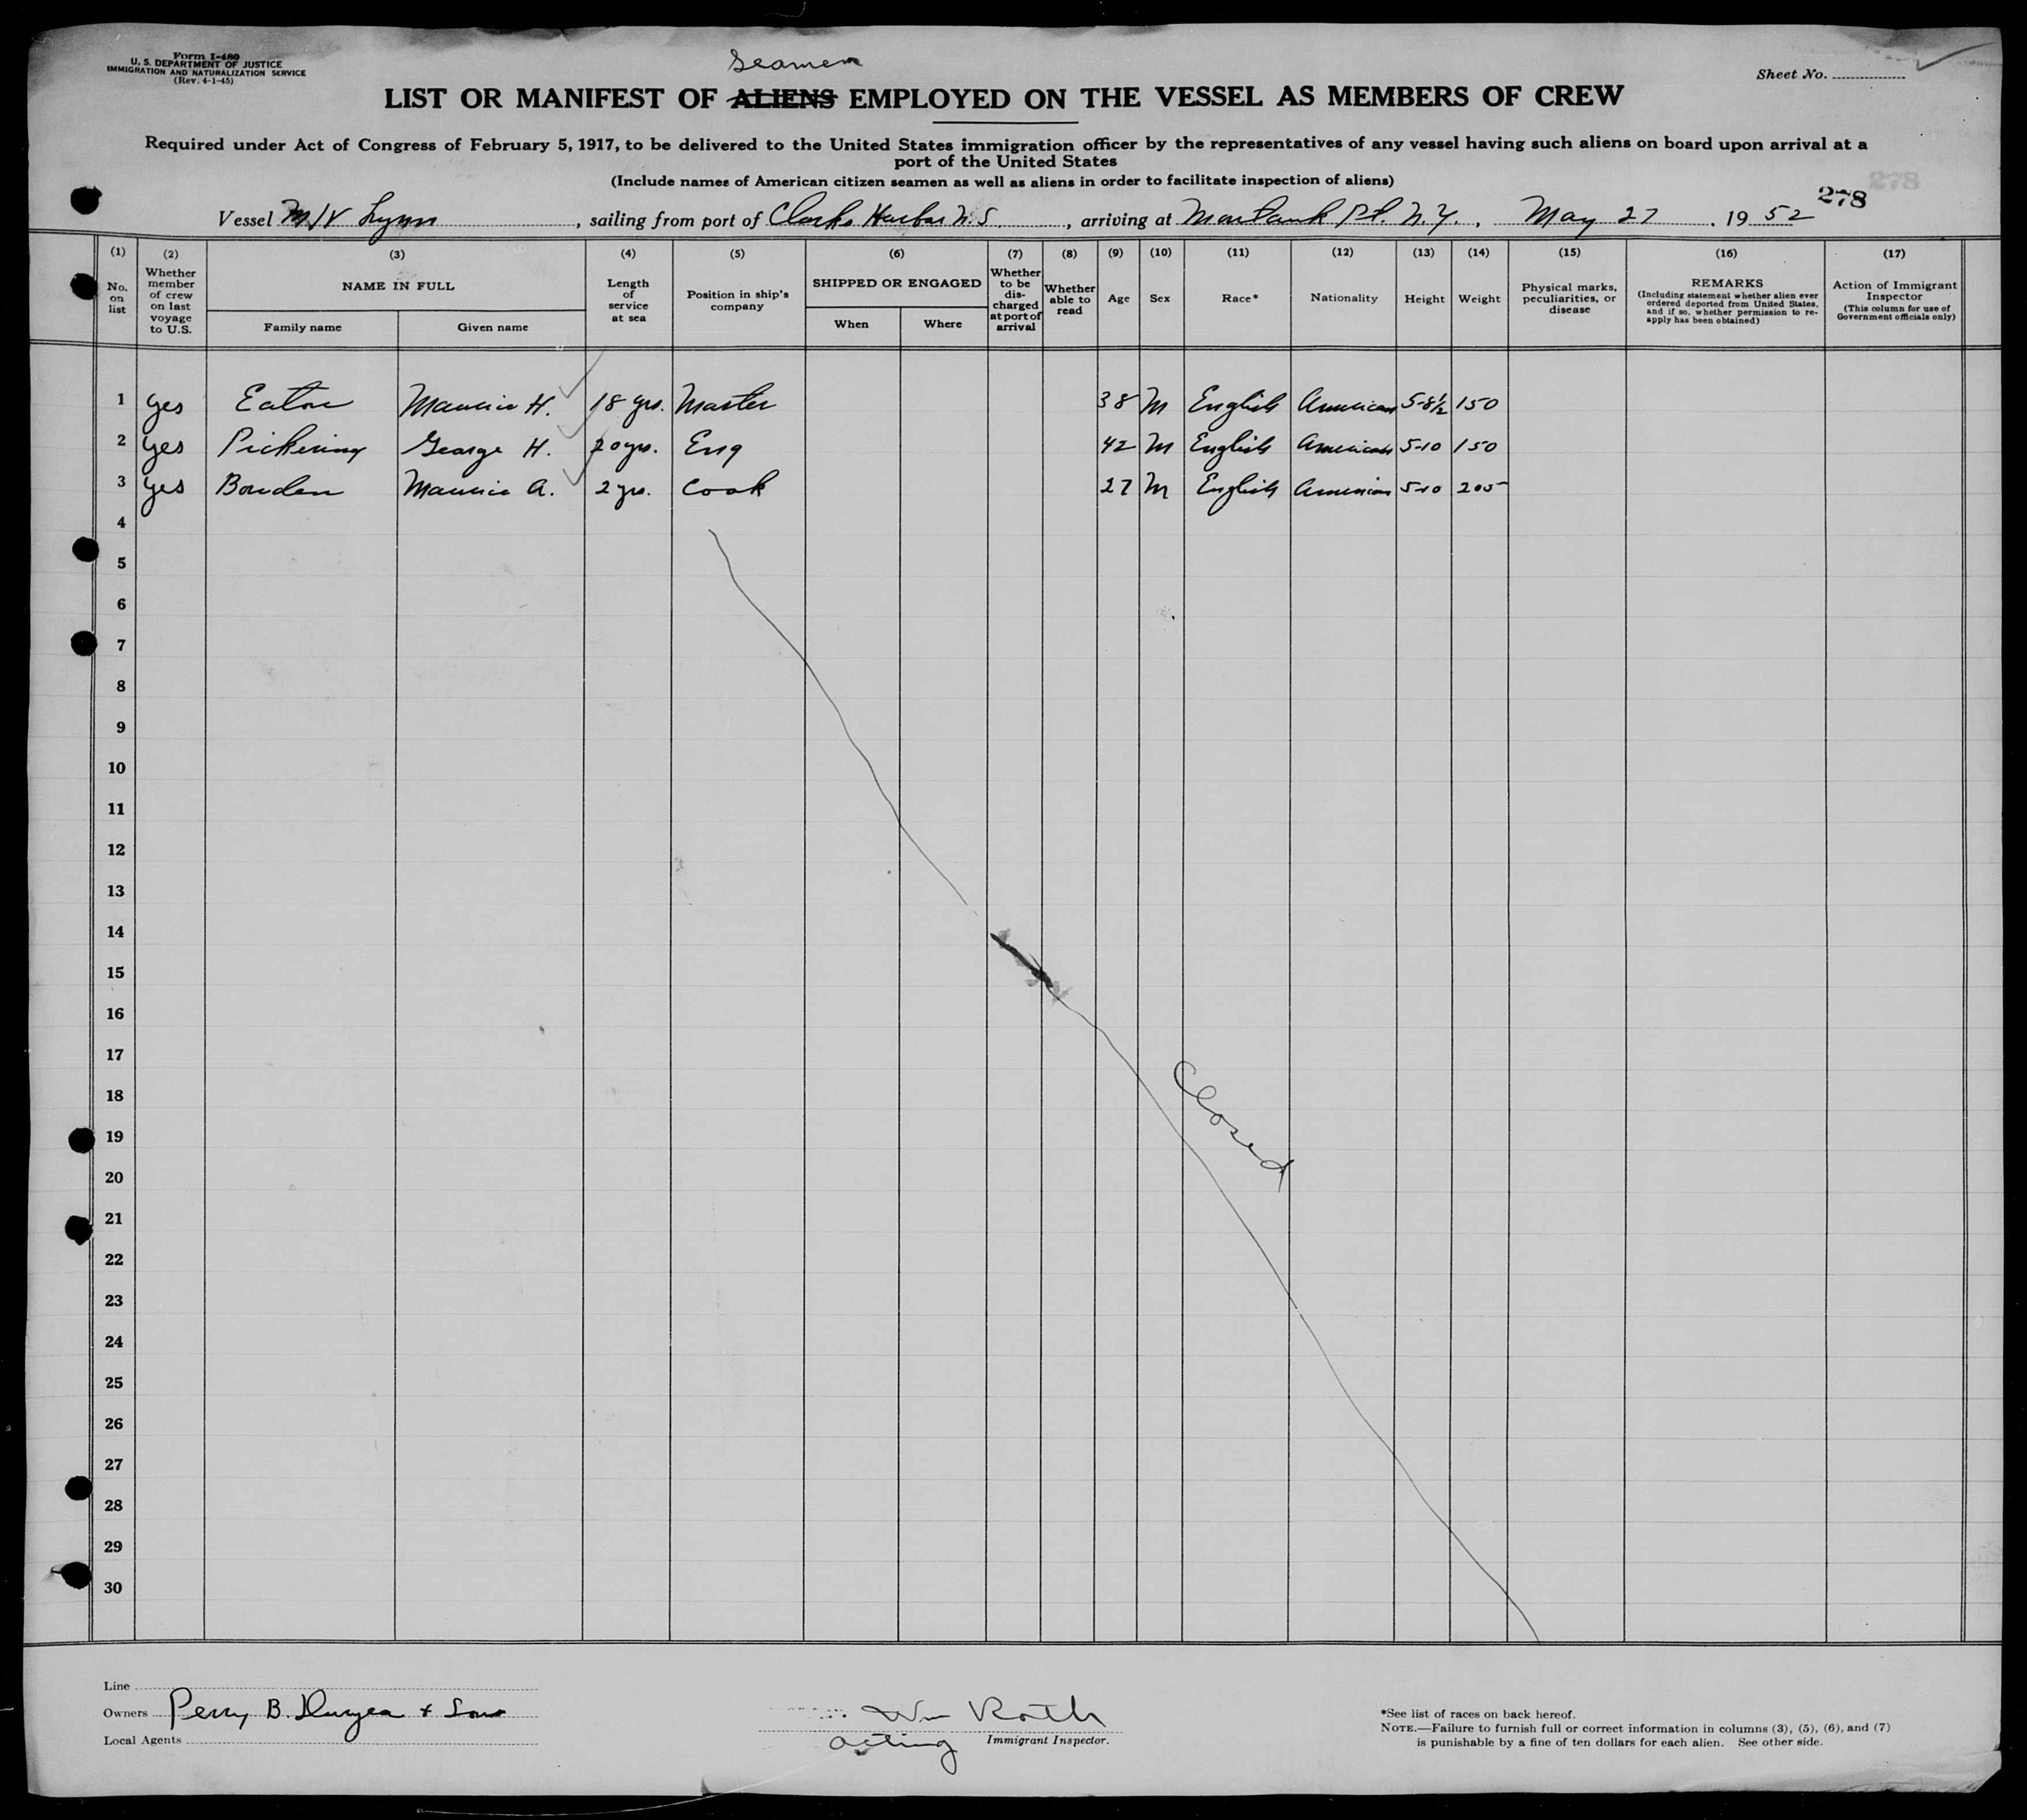 Form I-480
U. S. DEPARTMENT OF JUSTICE
IMMIGRATION AND NATURALIZATION SERVICE
(Rev. 4-1-45)
Sheet No.
Seamen
LIST OR MANIFEST OF ALIENS EMPLOYED ON THE VESSEL AS MEMBERS OF CREW
Required under Act of Congress of February 5, 1917, to be delivered to the United States immigration officer by the representatives of any vessel having such aliens on board upon arrival at a
port of the United States
(Include names of American citizen seamen as well as aliens in order to facilitate inspection of aliens)
278
278
Vessel M/V Lynn, sailing from port of Clarks Harbor N.S., arriving at Montauk Pt. N.Y., May 27, 1952
(1) (2) (3) (4) (5) (6) (7) (8) (9) (10) (11) (12) (13) (14) (15) (16) (17)
No. on list
Whether member of crew on last voyage to U.S.
NAME IN FULL
Family name
Given name
Length of service at sea
Position in ship's company
SHIPPED OR ENGAGED
When
Where
Whether to be discharged at port of arrival
Whether able to read
Age
Sex
Race*
Nationality
Height
Weight
Physical marks, peculiarities, or disease
REMARKS
(Including statement whether alien ever ordered deported from United States, and if so, whether permission to re-apply has been obtained)
Action of Immigrant Inspector
(This column for use of Government officials only)
1 yes Eaton Maurice H. 18 yrs. Master 38 M English American 5-8½ 150
2 yes Pickering George H. 20 yrs. Eng 42 M English American 5-10 150
3 yes Bowden Maurice A. 2 yrs. Cook 27 M English American 5-10 205
4
5
6
7
8
9
10
11
12
13
14
15
16
17
18
19
20
21
22
23
24
25
26
27
28
29
30
Closed
Line
Owners Perry B. Duryea + Son
Local Agents
Wm Roth
acting Immigrant Inspector.
*See list of races on back hereof.
NOTE.—Failure to furnish full or correct information in columns (3), (5), (6), and (7)
is punishable by a fine of ten dollars for each alien. See other side.